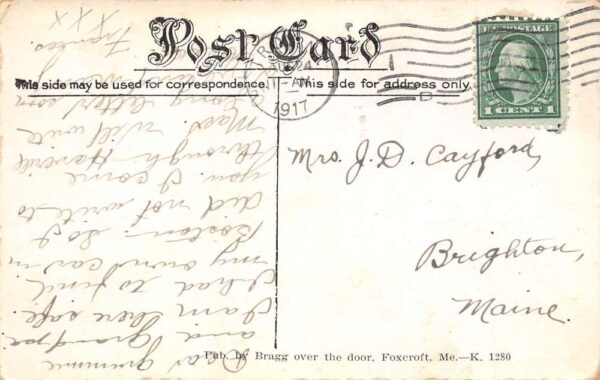 Post Card
This side may be used for correspondence.
This side for address only.
24
11-AM
1917
U.S. POSTAGE
1 CENT 1
Mrs. J. D. Cayford,
Brighton,
Maine.
Dear Grammie
and Grandpa
I am here safe
I had to find
my own car in
Boston. So I
did not write to
you. I come
through
Mass. Will write
long letter soon
Frances.
X X X
Pub. by Bragg over the door, Foxcroft, Me.—K. 1280